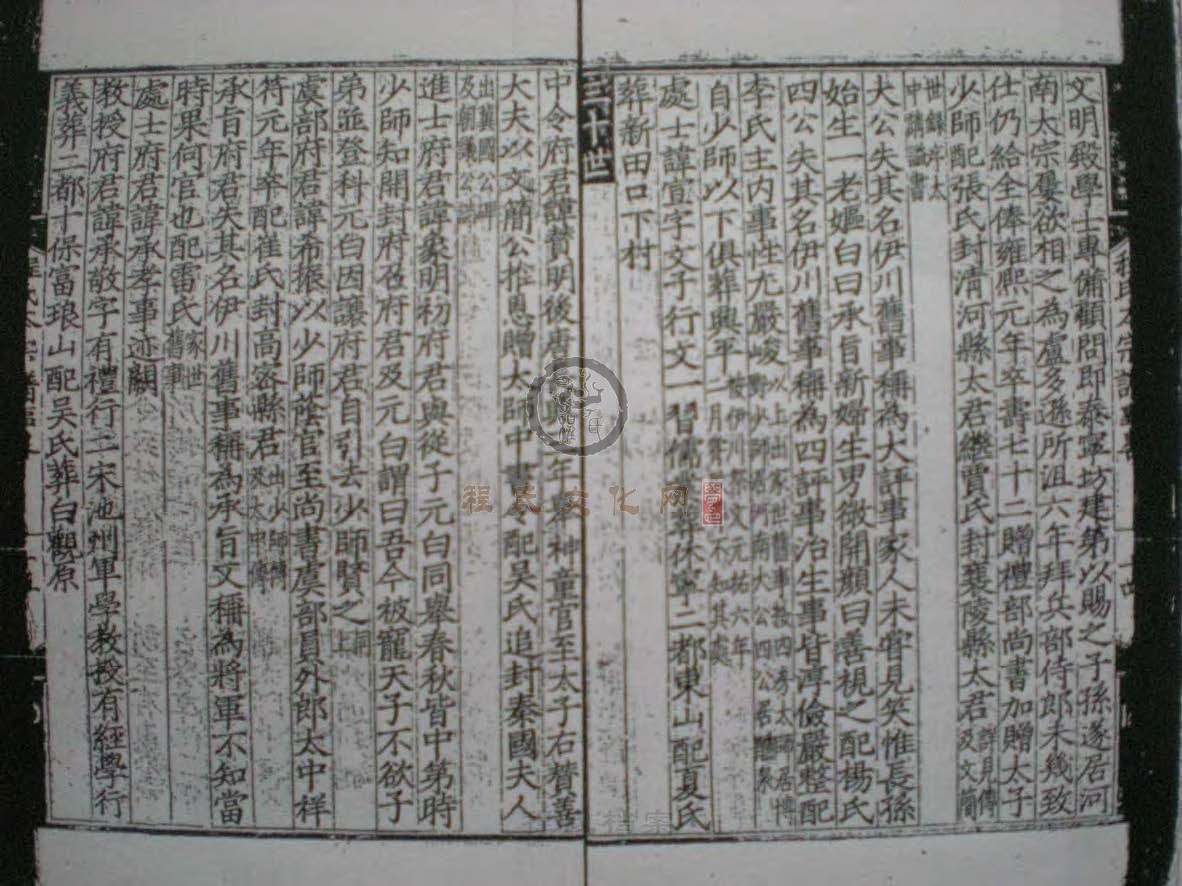 文明殿學士專備顧問即泰寧坊建第以賜之子孫遂居河
南太宗屢欲相之為盧多遜所沮六年拜兵部侍郎未幾致
仕仍給全俸雍熙元年卒壽七十二贈禮部尚書加贈太子
少師配張氏封清河縣太君繼賈氏封襄陵縣太君詳見傳及文簡
世錄
大公失其名伊川舊事稱為大評事家人未嘗見笑惟長孫
始生一老嫗白曰承旨新婦生男微開顏曰善視之配楊氏
四公失其名伊川舊事稱為四評事治生事皆淳儉嚴整配
李氏主內事性尤嚴峻以上出家世舊事
自少師以下俱葬興平
處士諱宣字文子行文一習儒葬休寧二都東山配夏氏
葬新田口下村
三十世
中令府君諱贊明後唐年舉神童官至太子右贊善
大夫以文簡公推恩贈太師中書令配吳氏追封秦國夫人
出冀國公
進士府君諱象明初府君與從子元白同舉春秋皆中第時
少師知開封府召府君及元白謂曰吾今被寵天子不欲子
弟並登科元白因讓府君自引去少師賢之同上
虞部府君諱希振以少師蔭官至尚書虞部員外郎太中祥
符元年卒配崔氏封高密縣君
承旨府君失其名伊川舊事稱為承旨又稱為將軍不知當
時果何官也配雷氏家世舊事
處士府君諱承孝事迹闕
教授府君諱承敬字有禮行二宋池州軍學教授有經學行
義葬二都十保富琅山配吳氏葬白觀原
程氏文化网